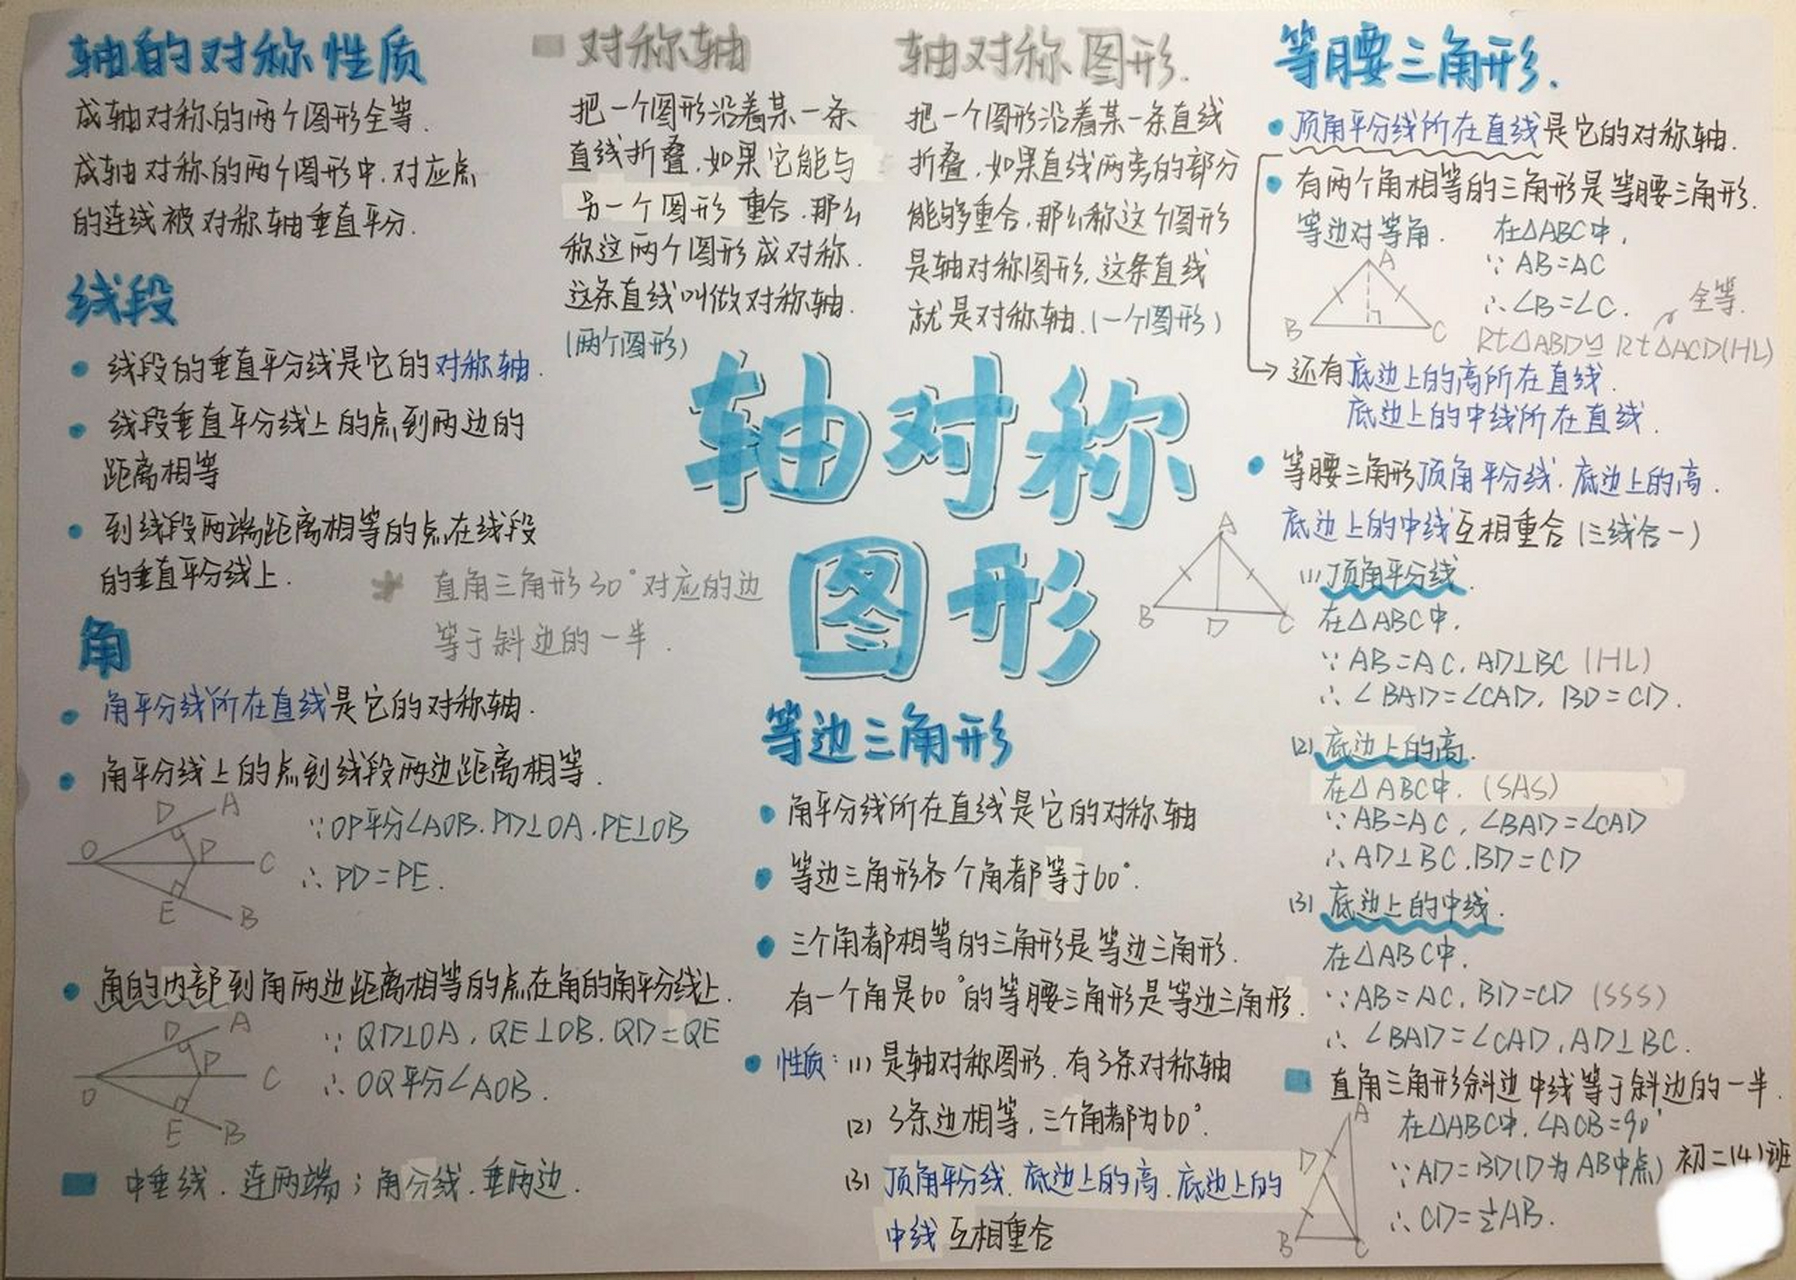 轴的对称性质
成轴对称的两个图形全等.
成轴对称的两个图形中,对应点
的连线被对称轴垂直平分.
线段
线段的垂直平分线是它的对称轴.
线段垂直平分线上的点到两边的
距离相等
到线段两端距离相等的点在线段
的垂直平分线上.
* 直角三角形30°对应的边
等于斜边的一半.
角
角平分线所在直线是它的对称轴.
角平分线上的点到线段两边距离相等.
D A
O P C
E B
∵OP平分∠AOB.PD⊥OA.PE⊥OB
∴PD=PE.
角的内部到角两边距离相等的点在角的角平分线上.
D A
O P C
E B
∵QD⊥OA,QE⊥OB.QD=QE
∴OQ平分∠AOB.
中垂线.连两端;角分线.垂两边.
对称轴
把一个图形沿着某一条
直线折叠,如果它能与
另一个图形重合.那么
称这两个图形成对称.
这条直线叫做对称轴.
(两个图形)
轴对称图形.
把一个图形沿着某一条直线
折叠,如果直线两旁的部分
能够重合,那么称这个图形
是轴对称图形,这条直线
就是对称轴.(一个图形)
轴对称
图形
等边三角形
角平分线所在直线是它的对称轴
等边三角形各个角都等于60°.
三个角都相等的三角形是等边三角形.
有一个角是60°的等腰三角形是等边三角形.
性质:(1)是轴对称图形.有3条对称轴
(2) 3条边相等,三个角都为60°.
(3) 顶角平分线.底边上的高.底边上的
中线互相重合
等腰三角形.
顶角平分线所在直线是它的对称轴.
有两个角相等的三角形是等腰三角形.
等边对等角. 在△ABC中,
∵AB=AC
∴∠B=∠C.
A
B C
全等.
Rt△ABD≌Rt△ACD(HL)
还有底边上的高所在直线.
底边上的中线所在直线.
等腰三角形顶角平分线.底边上的高.
底边上的中线互相重合(三线合一)
A
B D C
(1)顶角平分线.
在△ABC中.
∵AB=AC,AD⊥BC (HL)
∴∠BAD=∠CAD,BD=CD.
(2)底边上的高.
在△ABC中.(SAS)
∵AB=AC,∠BAD=∠CAD
∴AD⊥BC.BD=CD
(3)底边上的中线.
在△ABC中.
∵AB=AC,BD=CD (SSS)
∴∠BAD=∠CAD,AD⊥BC.
直角三角形斜边中线等于斜边的一半.
A
D
B C
在△ABC中,∠ACB=90°
∵AD=BD(D为AB中点)
∴CD=½AB.
初二(4)班